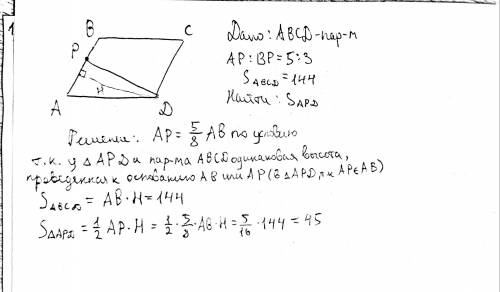 1
B
C
P
H
A
D
Дано: ABCD-пар-м
AP:BP=5:3
S_ABCD=144
Найти: S_APD
Решение: AP = 5/8 AB по условию
т.к. у △APD и пар-ма ABCD одинаковая высота,
проведенная к основанию AB или AP (в △APD, т.к AP∈AB)
S_ABCD = AB·H = 144
S_△APD = 1/2 AP·H = 1/2 · 5/8 · AB·H = 5/16 · 144 = 45